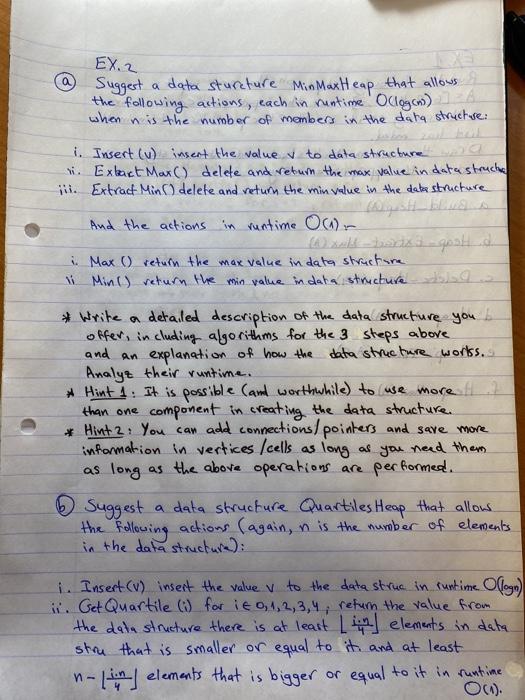 EX. 2
(a) Suggest a data sturcture MinMaxHeap that allows
the following actions, each in runtime O(log(n))
when n is the number of members in the data structure:
i. Insert (v) insert the value v to data structure
ii. Extract Max() delete and return the max value in data structure
iii. Extract Min() delete and return the min value in the data structure
And the actions in runtime O(1) -
i. Max () return the max value in data structure
ii Min() return the min value in data structure
* Write a detailed description of the data structure you
offer, including algorithms for the 3 steps above
and an explanation of how the data structure works.
Analyz their runtime.
* Hint 1: It is possible (and worthwhile) to use more
than one component in creating the data structure.
* Hint 2: You can add connections/pointers and save more
information in vertices/cells as long as you need them
as long as the above operations are performed.
(b) Suggest a data structure QuartilesHeap that allows
the following actions (again, n is the number of elements
in the data structure):
i. Insert(v) insert the value v to the data struc in runtime O(logn)
ii. Get Quartile (i) for i ∈ 0,1,2,3,4, return the value from
the data structure there is at least ⌊i·n/4⌋ elements in data
stru that is smaller or equal to it. and at least
n-⌊i·n/4⌋ elements that is bigger or equal to it in runtime
O(1).